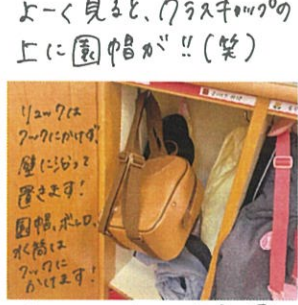 よーく見ると、クラスキャップの
上に園帽が!!(笑)
リュックは
フックにかけず、
壁にそって
置きます!
園帽、ボレロ、
水筒は
フックに
かけます!